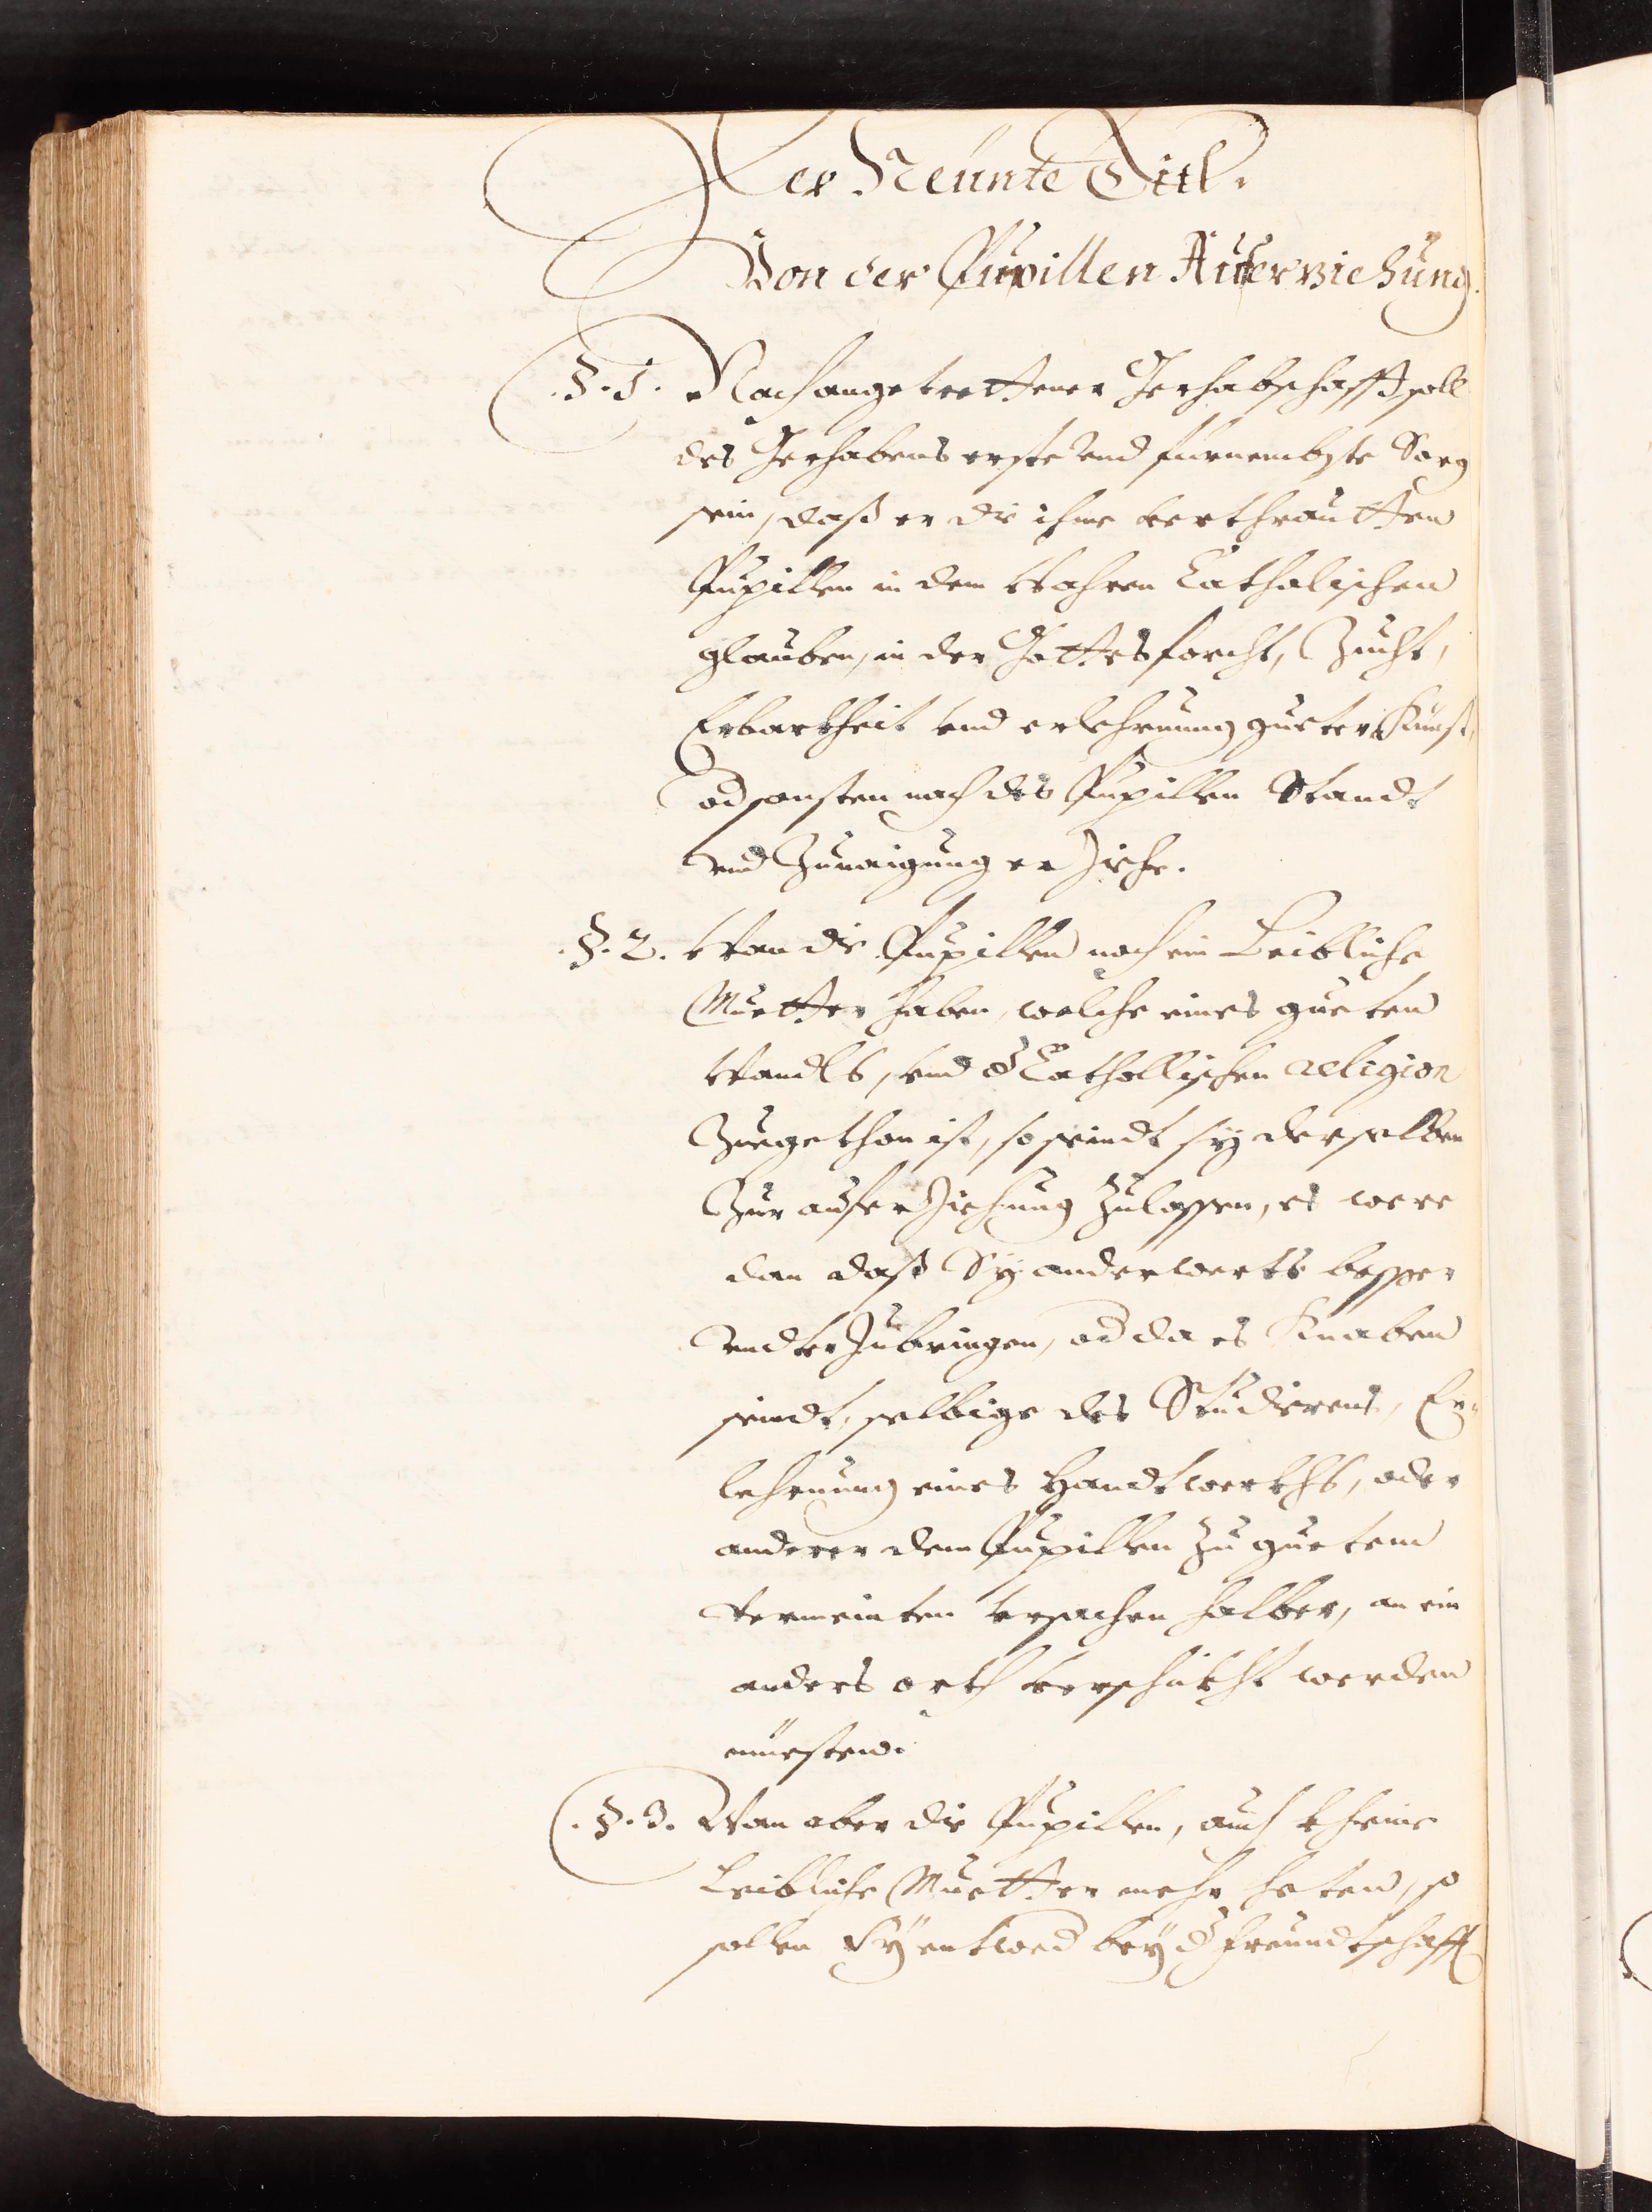 Der Neünte Titl.
Von der Pupillen Auferziehung.
§. 1. Nach angetrettener Gerhabschafft soll
des Gerhabens erste vnd fürnembste Sorg
sein, daß er die ihme verthrautten
Pupillen in dem wahren Catholischen
glauben, in der Gottesforcht, Zucht,
Erbarkheit vnd erlehrnung gueter Künst,
od sonsten nach des Pupillen Standt
vnd Zunaigung erziehe.
§. 2. Wan die Pupillen noch ein Leibliche
Muetter haben, welche eines gueten
Wandls, vnd d Cathollischen religion
Zuegethan ist, so seindt sy derselben
Zur auferziehung Zulassen, es were
dan daß Sy anderwerts besser
vndterzubringen, od da es Knaben
seindt, selbige des Studierens, Er„
lehrnung eines Handtwerkhs, oder
anderer dem Pupillen zu guetem
vermeinten vrsachen halber, an ein
anders orth verschikht werden
müesten.
§. 3. Wan aber die Pupillen, auch kheine
Leibliche Muetter mehr heten, so
sollen Sÿ entwed beÿ d Freundtschafft